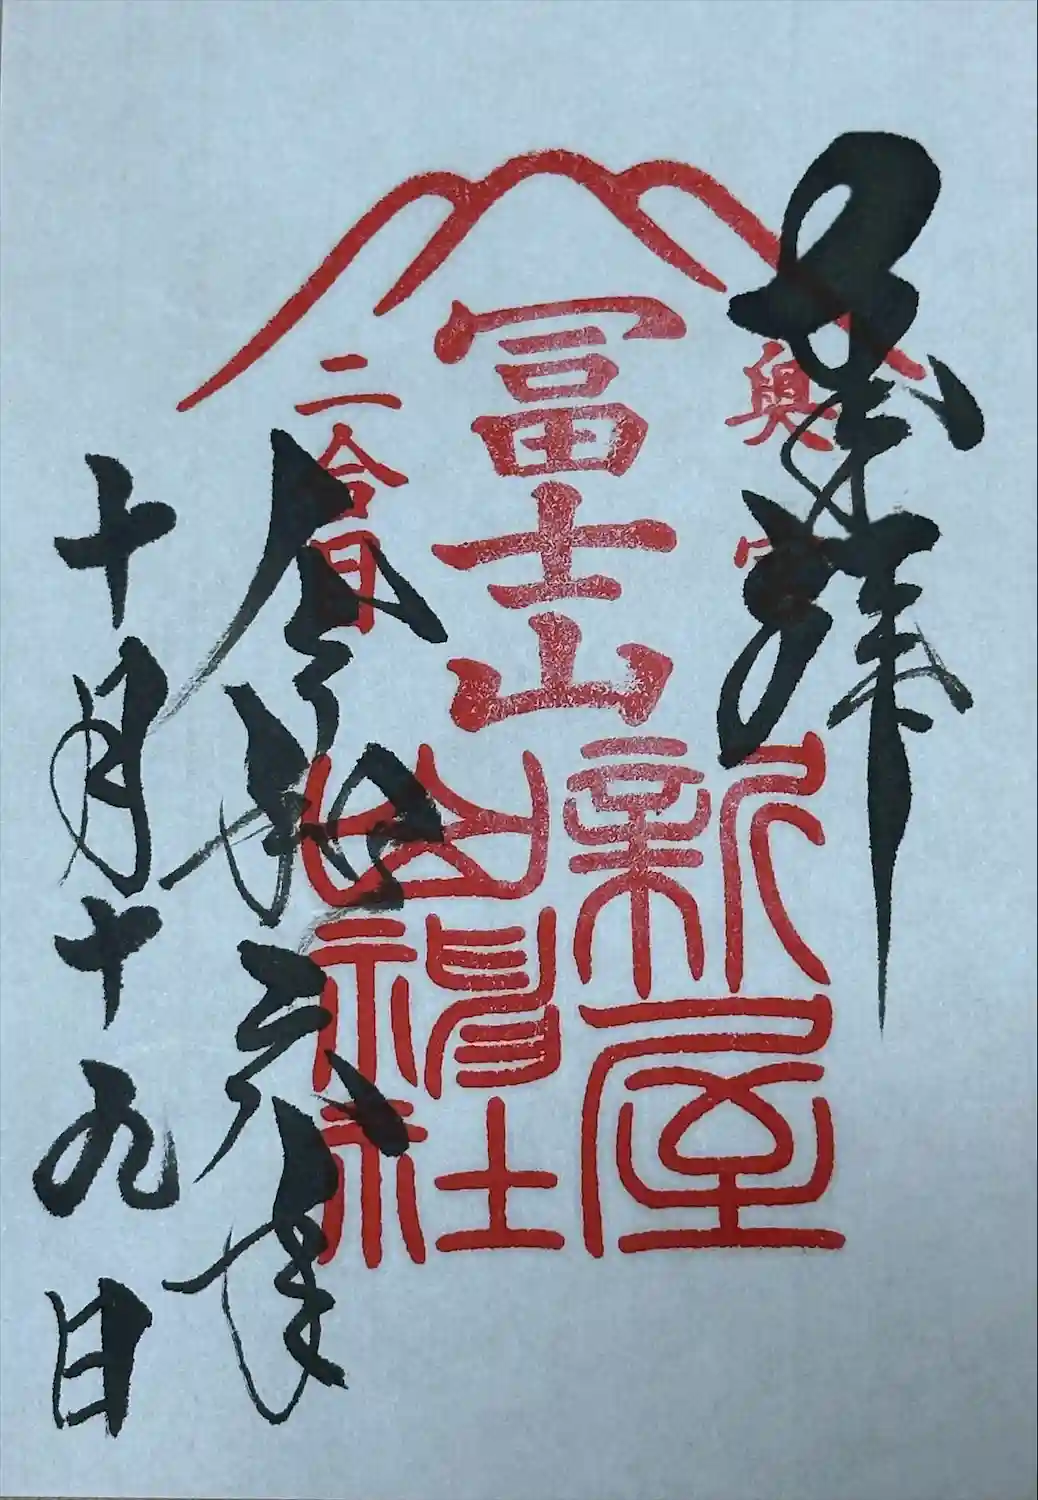 奉拝
奥宮
冨士山
二合目
新屋
山神社
令和六年
十月十九日